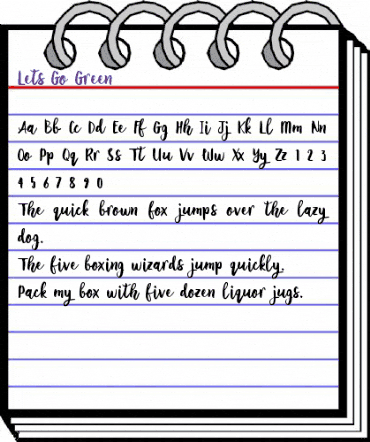 Lets Go Green
Aa Bb Cc Dd Ee Ff Gg Hh Ii Jj Kk Ll Mm Nn
Oo Pp Qq Rr Ss Tt Uu Vv Ww Xx Yy Zz 1 2 3
4 5 6 7 8 9 0
The quick brown fox jumps over the lazy
dog.
The five boxing wizards jump quickly.
Pack my box with five dozen liquor jugs.